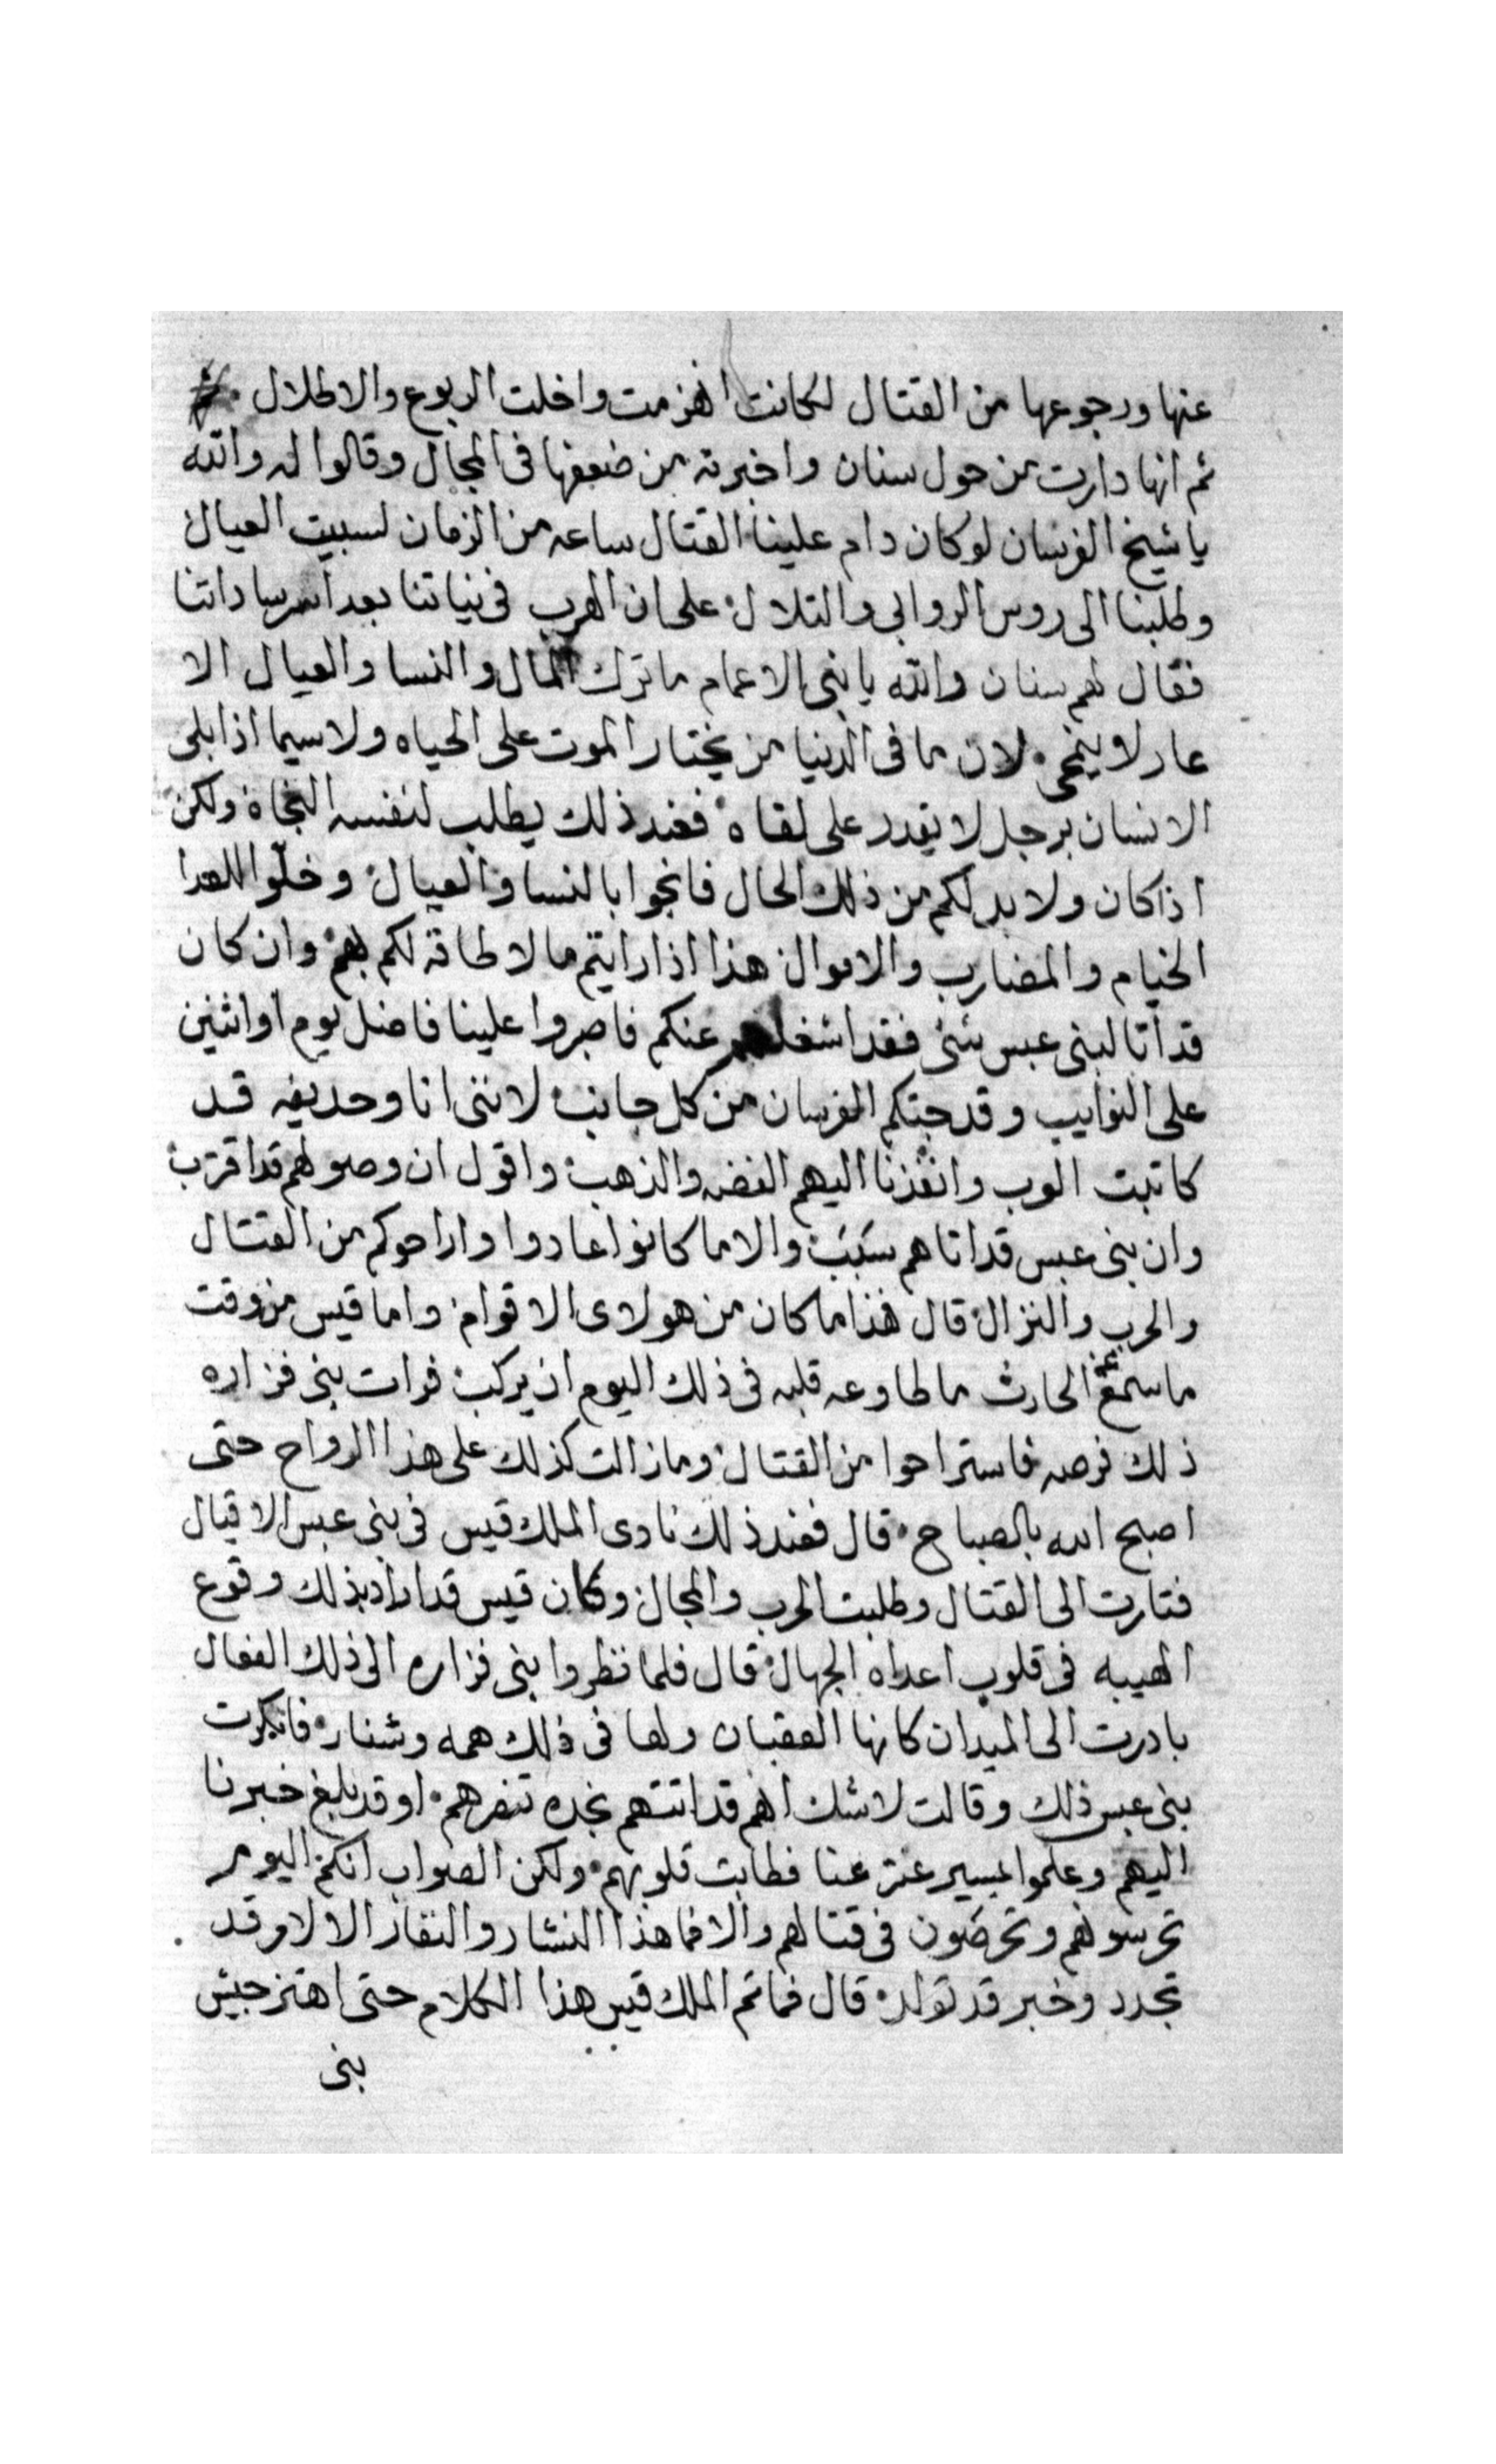 عنها ورجوعها من القتال لكانت انهزمت واخلت الربوع والاطلال
ثم انها دارت من حول سنان واخبرته من ضعفها فى المجال وقالوا له والله
يا شيخ الفرسان لو كان دام علينا القتال ساعه من الزمان لسبيت العيال
وطلبنا الى روس الروابى والتلال على ان الهرب فى نياتنا بعد اسر ساداتنا
فقال لهم سنان والله يا بنى الاعمام ما ترك المال والنسا والعيال الا
عار لا ينمحى لان ما فى الدنيا من يختار الموت على الحياه ولا سيما اذا بلى
الانسان برجل لا يقدر على لقاه فعند ذلك يطلب لنفسه النجاة ولكن
اذا كان ولا بد لكم من ذلك الحال فانجوا بالنسا والعيال وخلوا للعدا
الخيام والمضارب والاموال هذا اذا رايتم ما لا طاقه لكم بهم وان كان
قد اتا لبنى عبس شئ فقد اشغلهم عنكم فاصبروا علينا فاضل يوم او اثنين
على النوايب وقد جتكم الفرسان من كل جانب لاننى انا وحديفه قد
كاتبت العرب وانفذنا اليهم الفضه والذهب واقول ان وصولهم قد اقترب
وان بنى عبس قد اتاهم سبب والا ما كانوا عادوا واراحوكم من القتال
والحرب والنزال قال هذا ما كان من هولاى الاقوام واما قيس من وقت
ما سمع عن الحارث ما طاوعه قلبه فى ذلك اليوم ان يركب فرات بنى فزاره
ذلك فرصه فاستراحوا من القتال وما زالت كذلك على هذا الرواح حتى
اصبح الله بالصباح قال فعند ذلك نادى الملك قيس فى بنى عبس الاقيال
فتارت الى القتال وطلبت الحرب والمجال وكان قيس قد اراد بذلك وقوع
الهيبه فى قلوب اعداه الجهال قال فلما نظروا بنى فزاره الى ذلك الفعال
بادرت الى الميدان كانها العقبان ولها فى ذلك همه وشنار فانكرت
بنى عبس ذلك وقالت لا شك انهم قد اتتهم نجده تنصرهم او قد بلغ خبرنا
اليهم وعلموا بمسير عنتر عنا فطابت قلوبهم ولكن الصواب انكم اليوم
تحرسوهم وتحرضون فى قتالهم والا فما هذا النشار والنفار الا لامر قد
تجدد وخبر قد تولد قال فما تم الملك قيس هذا الكلام حتى اهتز جيش
بنى